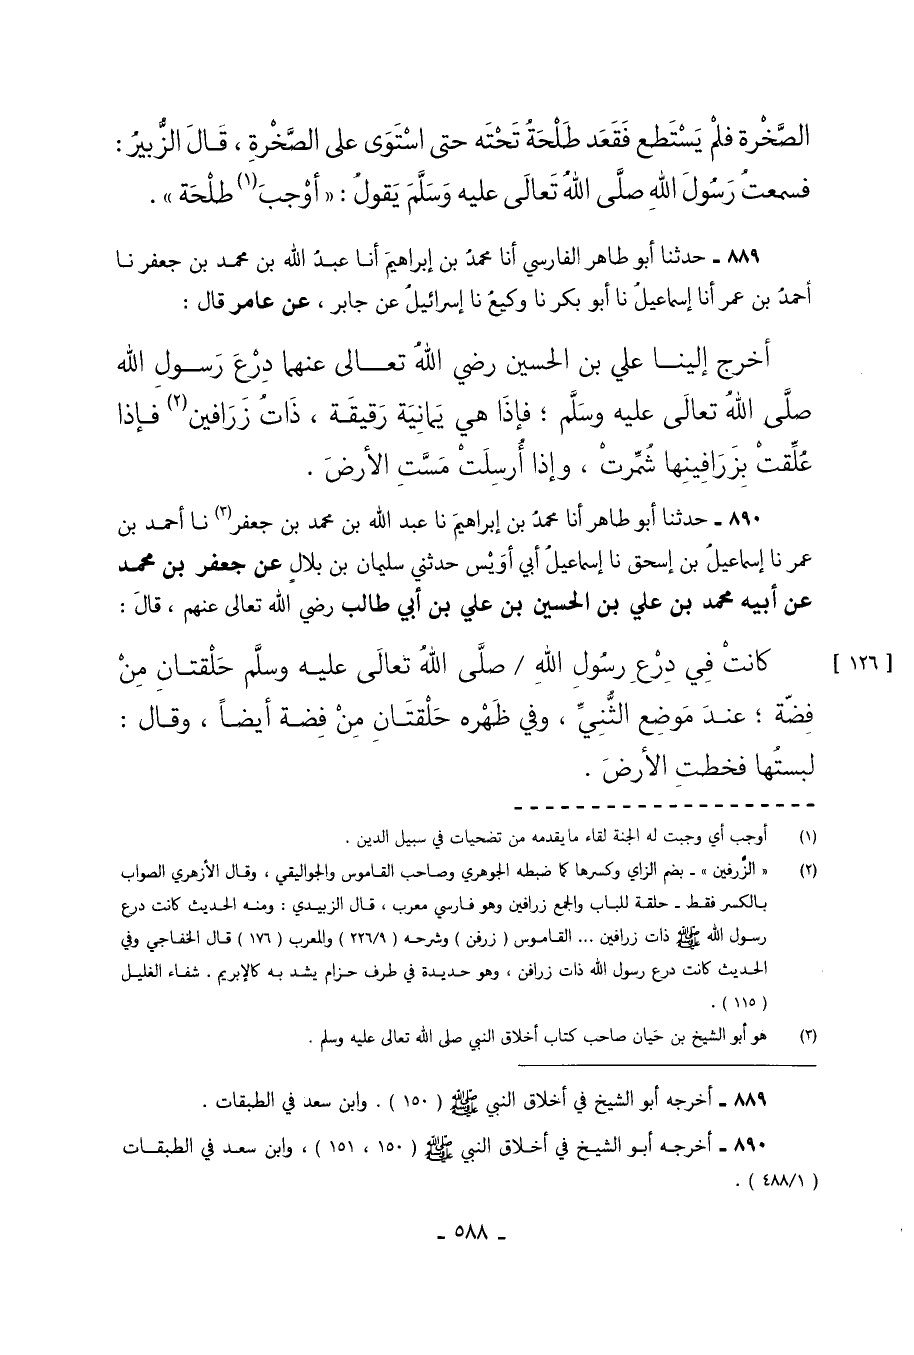 الصَّخْرة فلمْ يَسْتَطع فَقَعَد طَلْحَةُ تَحْتَه حتى اسْتَوَى على الصَّخْرةِ ، قَـالَ الزُّبيرُ :
فسمعتُ رَسُولَ اللهِ صلَّى اللهُ تَعَالَى عليه وَسَلَّمَ يَقولُ : « أوْجبَ(١) طلْحَة » .
٨٨٩ ـ حدثنا أبو طاهر الفارسي أنا محمدُ بن إبراهيمَ أنـا عبـدُ الله بن محمـد بن جعفر نـا
أحمدُ بن عمر أنا إسماعيلُ نا أبو بكر نا وكيعُ نا إسرائيلُ عن جابر ، عن عامر قال :
أخرج إلينــا علي بن الحسين رضي اللهُ تعــالى عنهما دِرْعَ رَســولِ الله
صلَّى اللهُ تعَالَى عليه وسَلَّم ؛ فإذَا هي يَمانيَة رَقيقَـة ، ذَاتُ زَرَافين(٢) فـإذا
عُلِّقتْ بِزَرَافينِها شُمِّرتْ ، وإذا أُرسِلَتْ مَسَّتِ الأرضَ .
٨٩٠ ـ حدثنا أبو طاهر أنا محمدُ بن إبراهيمَ نا عبد الله بن محمد بن جعفر(٣) نـا أحمـد بن
عمر نا إسماعيلُ بن إسحق نا إسماعيلُ أبي أوَيْس حدثني سليمان بن بلالٍ عن جعفر بن محمـد
عن أبيه محمد بن علي بن الحسين بن علي بن أبي طالب رضي الله تعالى عنهم ، قالَ :
[ ١٢٦ ] كانتْ فِي دِرْعِ رسُولِ اللهِ / صلَّى اللهُ تعالَى عليـه وسلَّم حَلْقتـانِ مِنْ
فِضّة ؛ عنـدَ مَوضِع الثُّنيِّ ، وفي ظَهْره حَلْقتَـانِ مِنْ فِضـة أيضـاً ، وقـال :
لبستُها فخطتِ الأرضَ .
(١) أوجب أي وجبت له الجنة لقاء ما يقدمه من تضحيات في سبيل الدين .
(٢) « الزُّرفين » ـ بضم الزاي وكسرها كما ضبطه الجوهري وصاحب القـاموس والجواليقي ، وقـال الأزهري الصواب
بـالكسر فقـط ـ حلقـة للبـاب والجمع زرافين وهو فـارسي معرب ، قـال الزبيـدي : ومنـه الحـديث كانت درع
رسول الله ﷺ ذات زرافين ... القـامـوس ( زرفن ) وشرحـه ( ٢٢٦/٩ ) والمعرب ( ١٧٦ ) قـال الخفـاجي وفي
الحـديث كانت درع رسول الله ذات زرافن ، وهو حـديـدة في طرف حـزام يشـد بـه كالإبريم . شفـاء الغليـل
( ١١٥ ) .
(٣) هو أبو الشيخ بن حَيان صاحب كتاب أخلاق النبي صلى الله تعالى عليه وسلم .
٨٨٩ ـ أخرجه أبو الشيخ في أخلاق النبي ﷺ ( ١٥٠ ) . وابن سعد في الطبقات .
٨٩٠ ـ أخرجـه أبـو الشيـخ في أخـلاق النبي ﷺ ( ١٥٠ ، ١٥١ ) ، وابن سعـد في الطبقـات
( ٤٨٨/١ ) .
ـ ٥٨٨ ـ